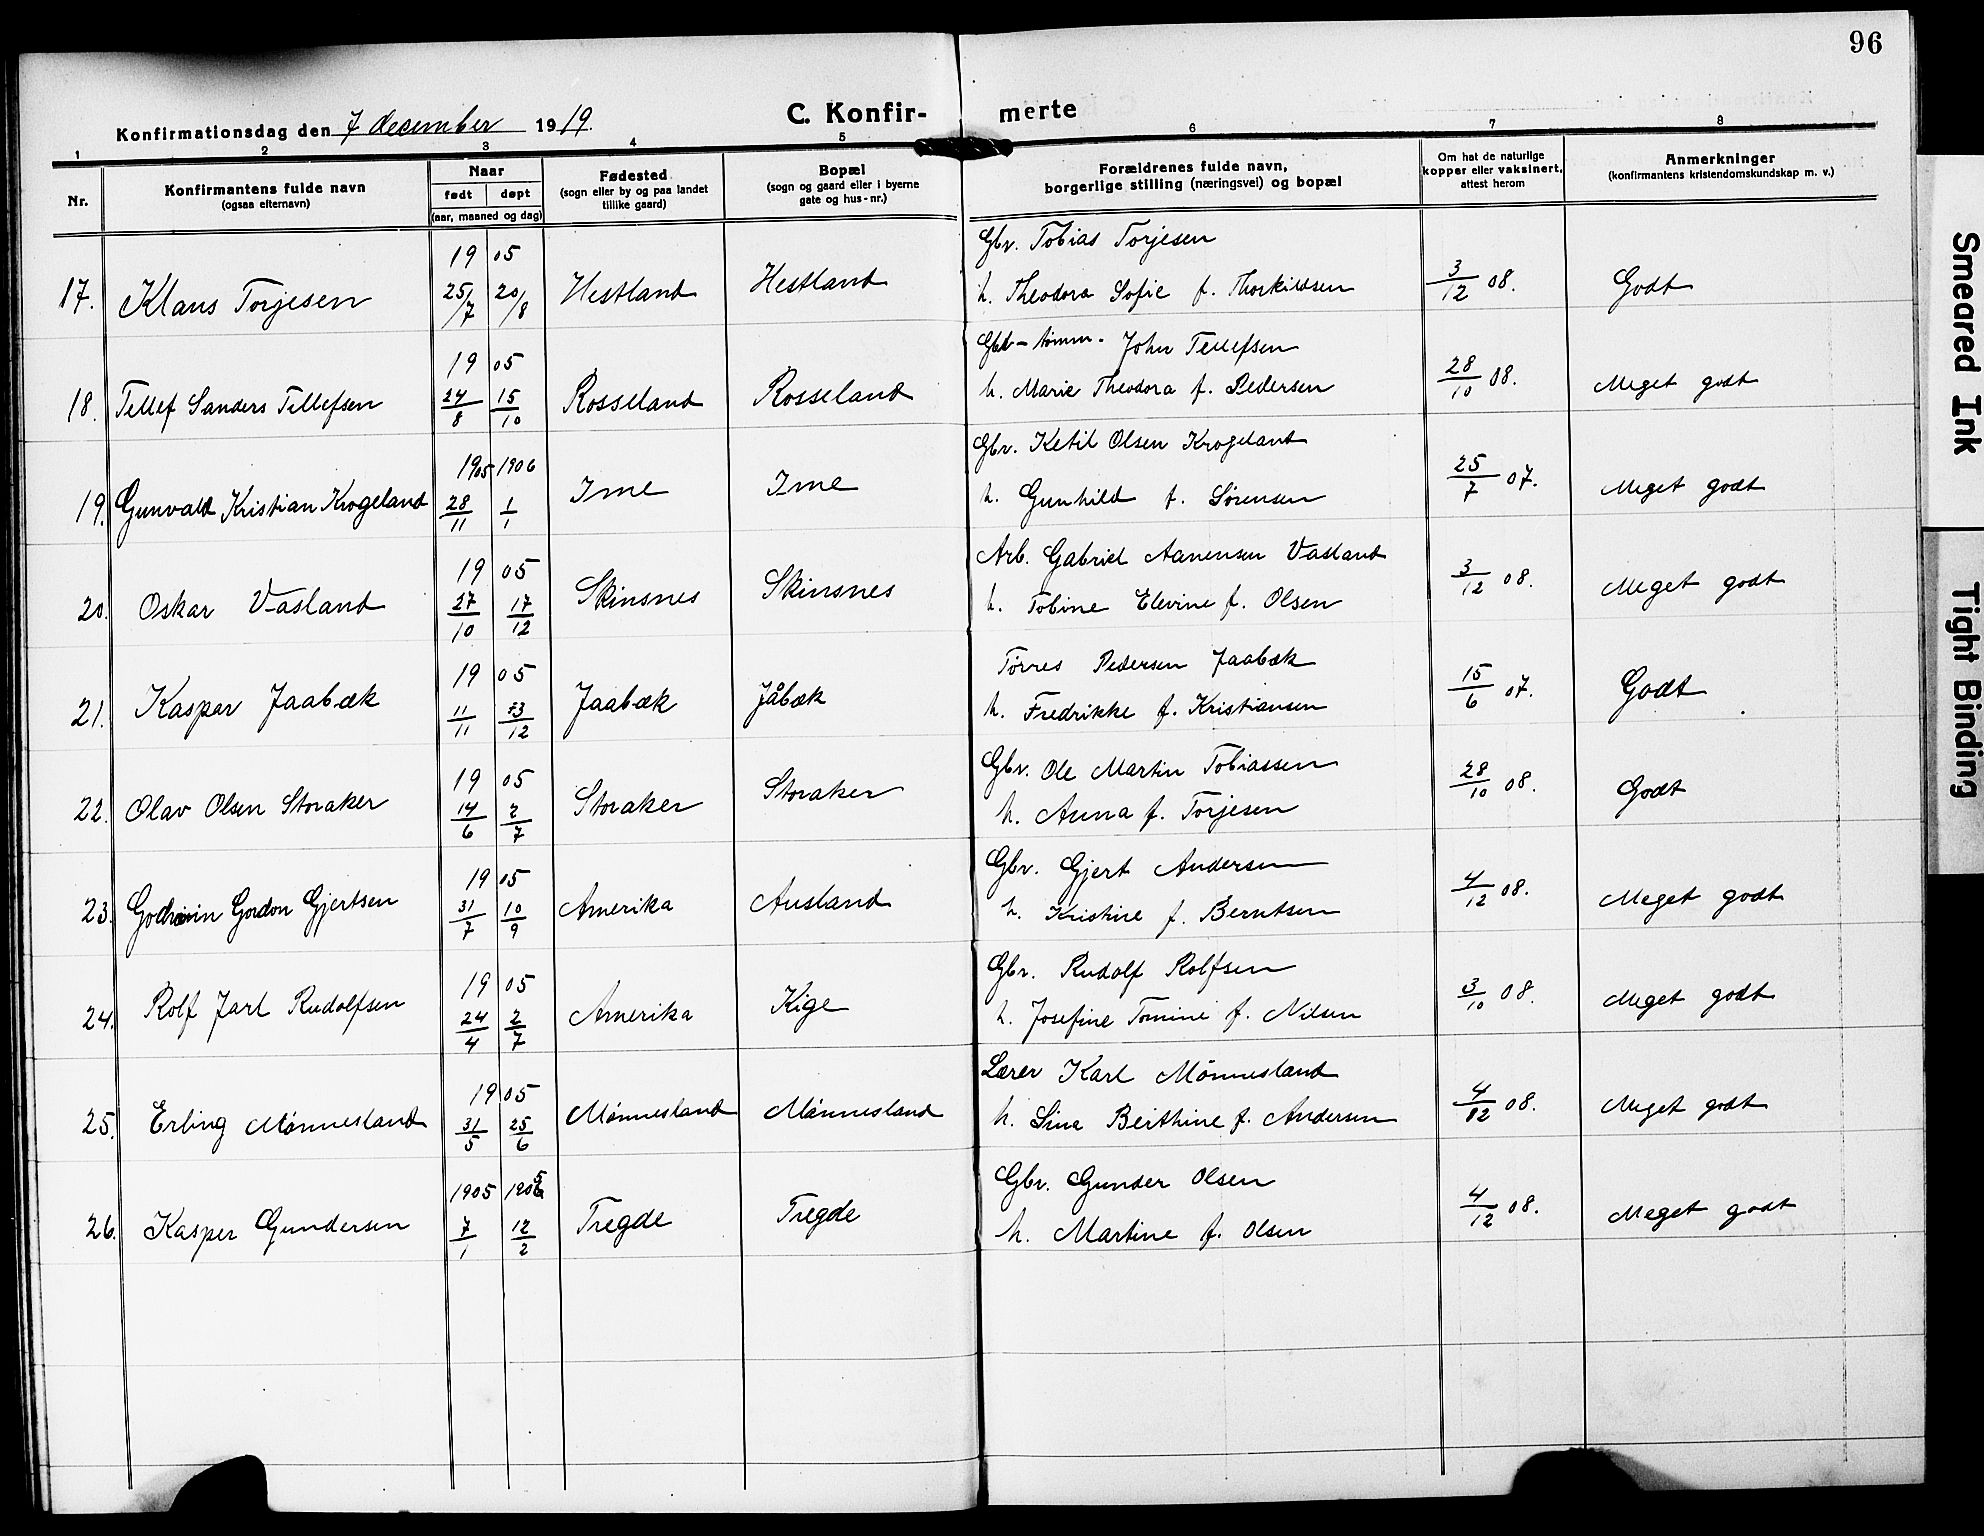 96
Konfirmationsdag den 7 december 1919.
C. Konfir- merte
1 2 3 4 5 6 7 8
Nr.
Konfirmantens fulde navn
(ogsaa efternavn)
Naar
født døpt
(aar, maaned og dag)
Fødested
(sogn eller by og paa landet
tillike gaard)
Bopæl
(sogn og gaard eller i byerne
gate og hus-nr.)
Forældrenes fulde navn,
borgerlige stilling (næringsvei) og bopæl
Om hat de naturlige
kopper eller vaksinert,
attest herom
Anmerkninger
(konfirmantens kristendomskundskap m. v.)
19 05 Gbr. Tobias Torjesen
17. Klaus Torjesen 25/7 20/8 Hestland Hestland h. Theodora Sofie f. Thorkildsen 3/12 08. Godt
19 05 Gbr - tømm. John Tellefsen
18. Tellef Sanders Tellefsen 24/8 15/10 Rosseland Rosseland h. Marie Theodora f. Pedersen 28/10 08. Meget godt
1905 1906 Gbr. Ketil Olsen Krogeland
19. Gunvald Kristian Krogeland 28/11 1/1 Ime Ime h. Gunhild f. Sørensen 25/7 07. Meget godt
19 05 Arb. Gabriel Aanensen Vasland
20. Oskar Vasland 27/10 17/12 Skinsnes Skinsnes h. Tobine Elevine f. Olsen 3/12 08. Meget godt
19 05 Tørres Pedersen Jaabæk
21. Kaspar Jaabæk 11/11 /12 Jaabæk Jåbæk h. Fredrikke f. Kristiansen 15/6 07. Godt
19 05 Gbr. Ole Martin Tobiassen
22. Olav Olsen Storaker 14/6 2/7 Storaker Storaker h. Anna f. Torjesen 28/10 08. Godt
19 05 Gbr. Gjert Andersen
23. Gordon Gjertsen 31/7 10/9 Amerika Ausland h. Kristine f. Berntsen 4/12 08. Meget godt
19 05 Gbr. Rudolf Rolfsen
24. Rolf Jarl Rudolfsen 24/4 2/7 Amerika Kige h. Josefine Tomine f. Nilsen 3/10 08. Meget godt
19 05 Lærer Karl Mønnesland
25. Erling Mønnesland 31/5 25/6 Mønnesland Mønnesland h. Lina Berthine f. Andersen 4/12 08. Meget godt
1905 1905 Gbr. Gunder Olsen
26. Kasper Gundersen 7/1 12/2 Tregde Tregde h. Martine f. Olsen 4/12 08. Meget godt
Smeared Ink
Tight Binding